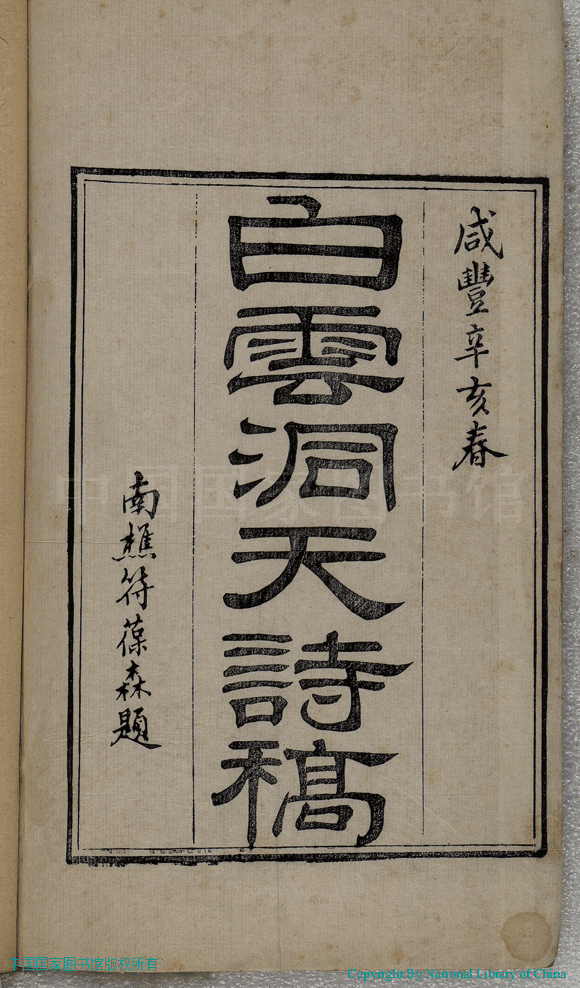 咸豐辛亥春
白雲洞天詩稿
南樵符葆森題
中国国家图书馆
中国国家图书馆版权所有
Copyright By National Library of China